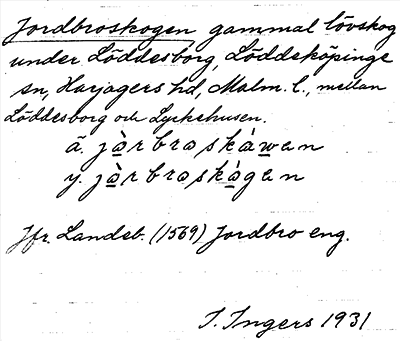 Jordbroskogen gammal lövskog
under Löddesborg, Löddeköpinge
sn, Harjagers hd, Malm. l., mellan
Löddesborg och Lyckehusen.
ä. jò̲rbroskå̲̀wen
y. jò̲rbroskå̲̀gen
Jfr. Landeb. (1569) Jordbro eng.
I. Ingers 1931